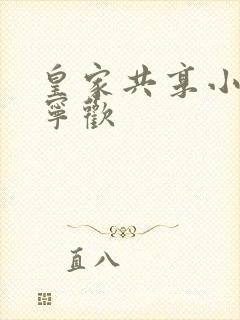 皇家共享小
寧歡
直八